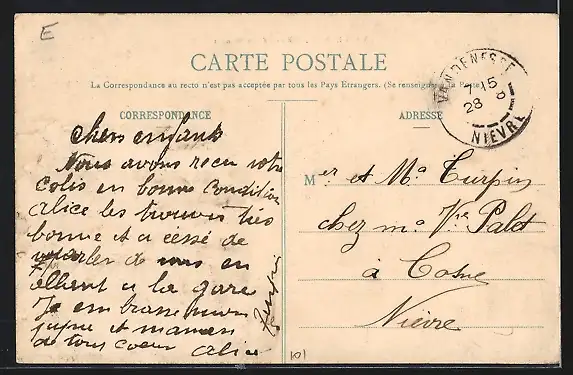 E
CARTE POSTALE
La Correspondance au recto n'est pas acceptée par tous les Pays Etrangers. (Se renseigner à la Poste)
VANDENESSE
7-15
28
NIEVRE
CORRESPONDANCE
ADRESSE
chers enfants
Nous avons recu votre
colis en bonne condition
alice les trouves très
bonne et a cessé de
parler de vous en
allant a la gare
Je embrasse mon
et maman
de tous coeur alice
Turpin
Mer et Ma Turpin
chez ma Vve Palot
à Cosne
Nièvre
101